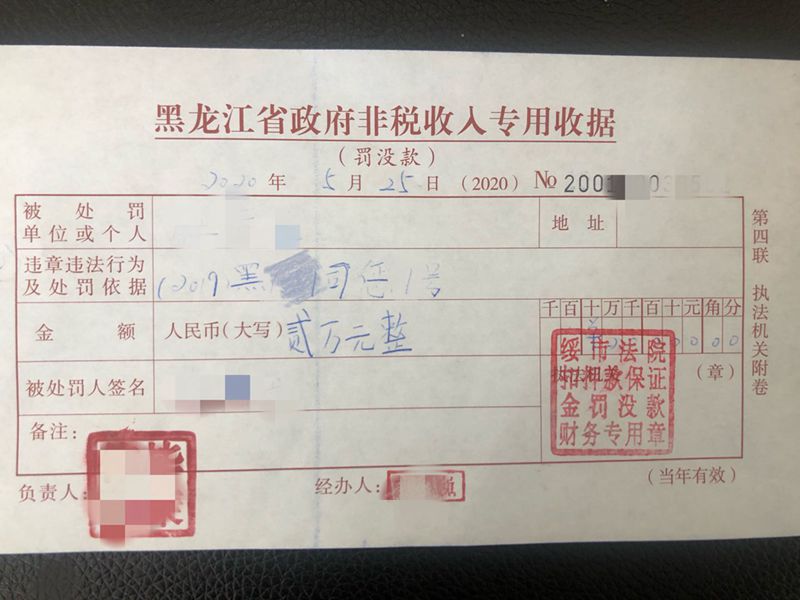 黑龙江省政府非税收入专用收据
(罚没款)
2020 年 5 月 25 日 (2020) № 200
被处罚
单位或个人
地址
违章违法行为
及处罚依据
(2019)黑 司惩1号
金额
人民币(大写) 贰万元整
千百十万千百十元角分
被处罚人签名
执法机关 (章)
绥市法院
扣押款保证
金罚没款
财务专用章
备注:
负责人:
经办人:
(当年有效)
第四联 执法机关附卷